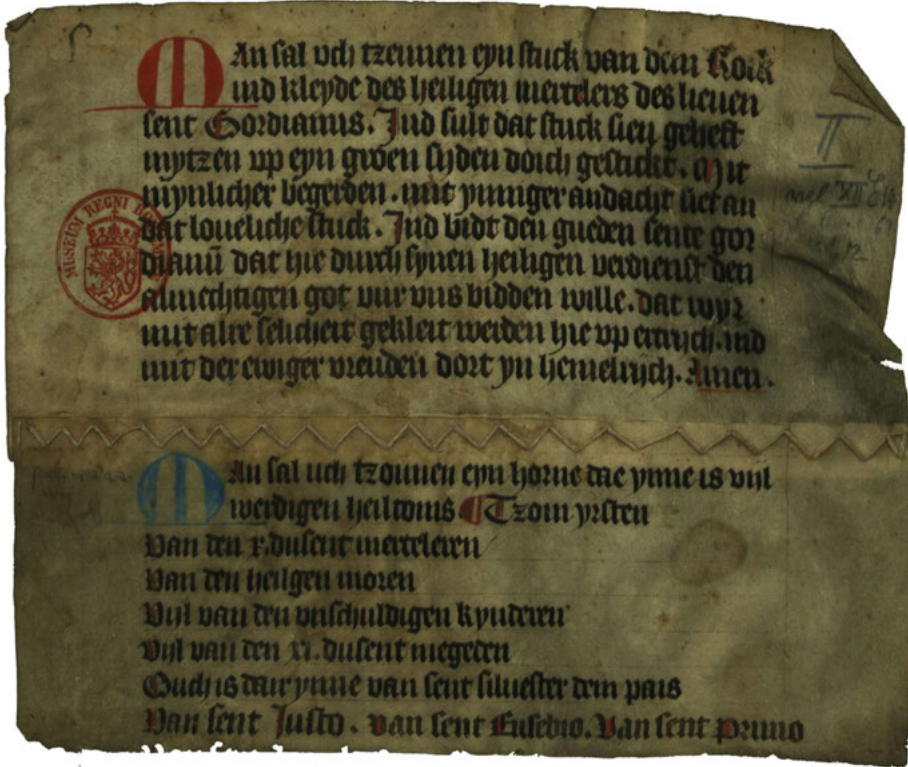 MAn sal vch tzeunen eyn stuck van dem Roik
ind kleyde des heiligen mertelers des lieuen
sent Gordianus. Ind sult dat stuck sien geheft
mytzen vp eyn groen syden doich gestickt. Mit
mynlicher begerden. mit ynniger andacht siet an
dat loueliche stuck. Ind bidt den gueden sente gor
dianū dat hie durch synen heiligen verdienst den
almechtigen got vur vns bidden wille. dat wyr
mit alre selicheit gekleit werden hie vp ertrych. ind
mit der ewiger vreuden dort yn hemelrych. Amen.
MUSEUM REGNI
II
XII
MAn sal uch tzounen eyn horne dae ynne is vijl
werdigen heiltoms Tzom yrsten
Van den x. dusent merteleren
Van den heilgen moren
Vijl van den vnschuldigen kynderen
Vijl van den xi. dusent megeden
Ouch is dair ynne van sent siluester dem pais
Van sent Justo. Van sent Eusebio. Van sent Primo